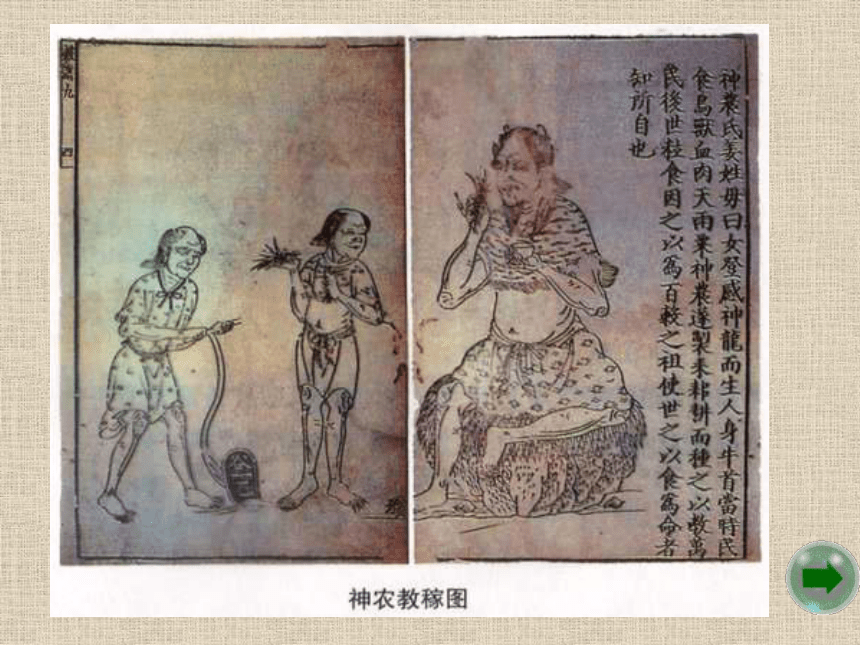 神農氏姜姓母曰女登感神龍而生人身牛首當時民
食鳥獸血肉天雨粟神農遂製耒耜耕而種之以教萬
民後世粒食因之以為百穀之祖使世之以食為命者
知所自也
四
神农教稼图